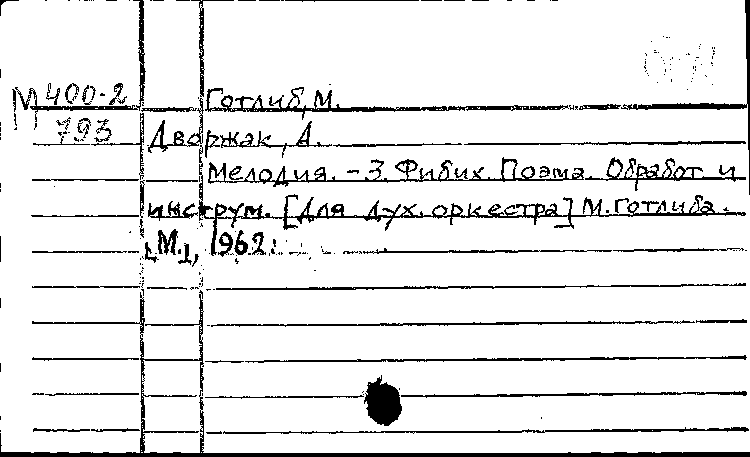 М 400-2 Готлиб, М.
793 Дворжак, А.
Мелодия. - З. Фибих. Поэма. Обработ и
инструм. [Для дух. оркестра] М. Готлиба.
[М.], 1962.